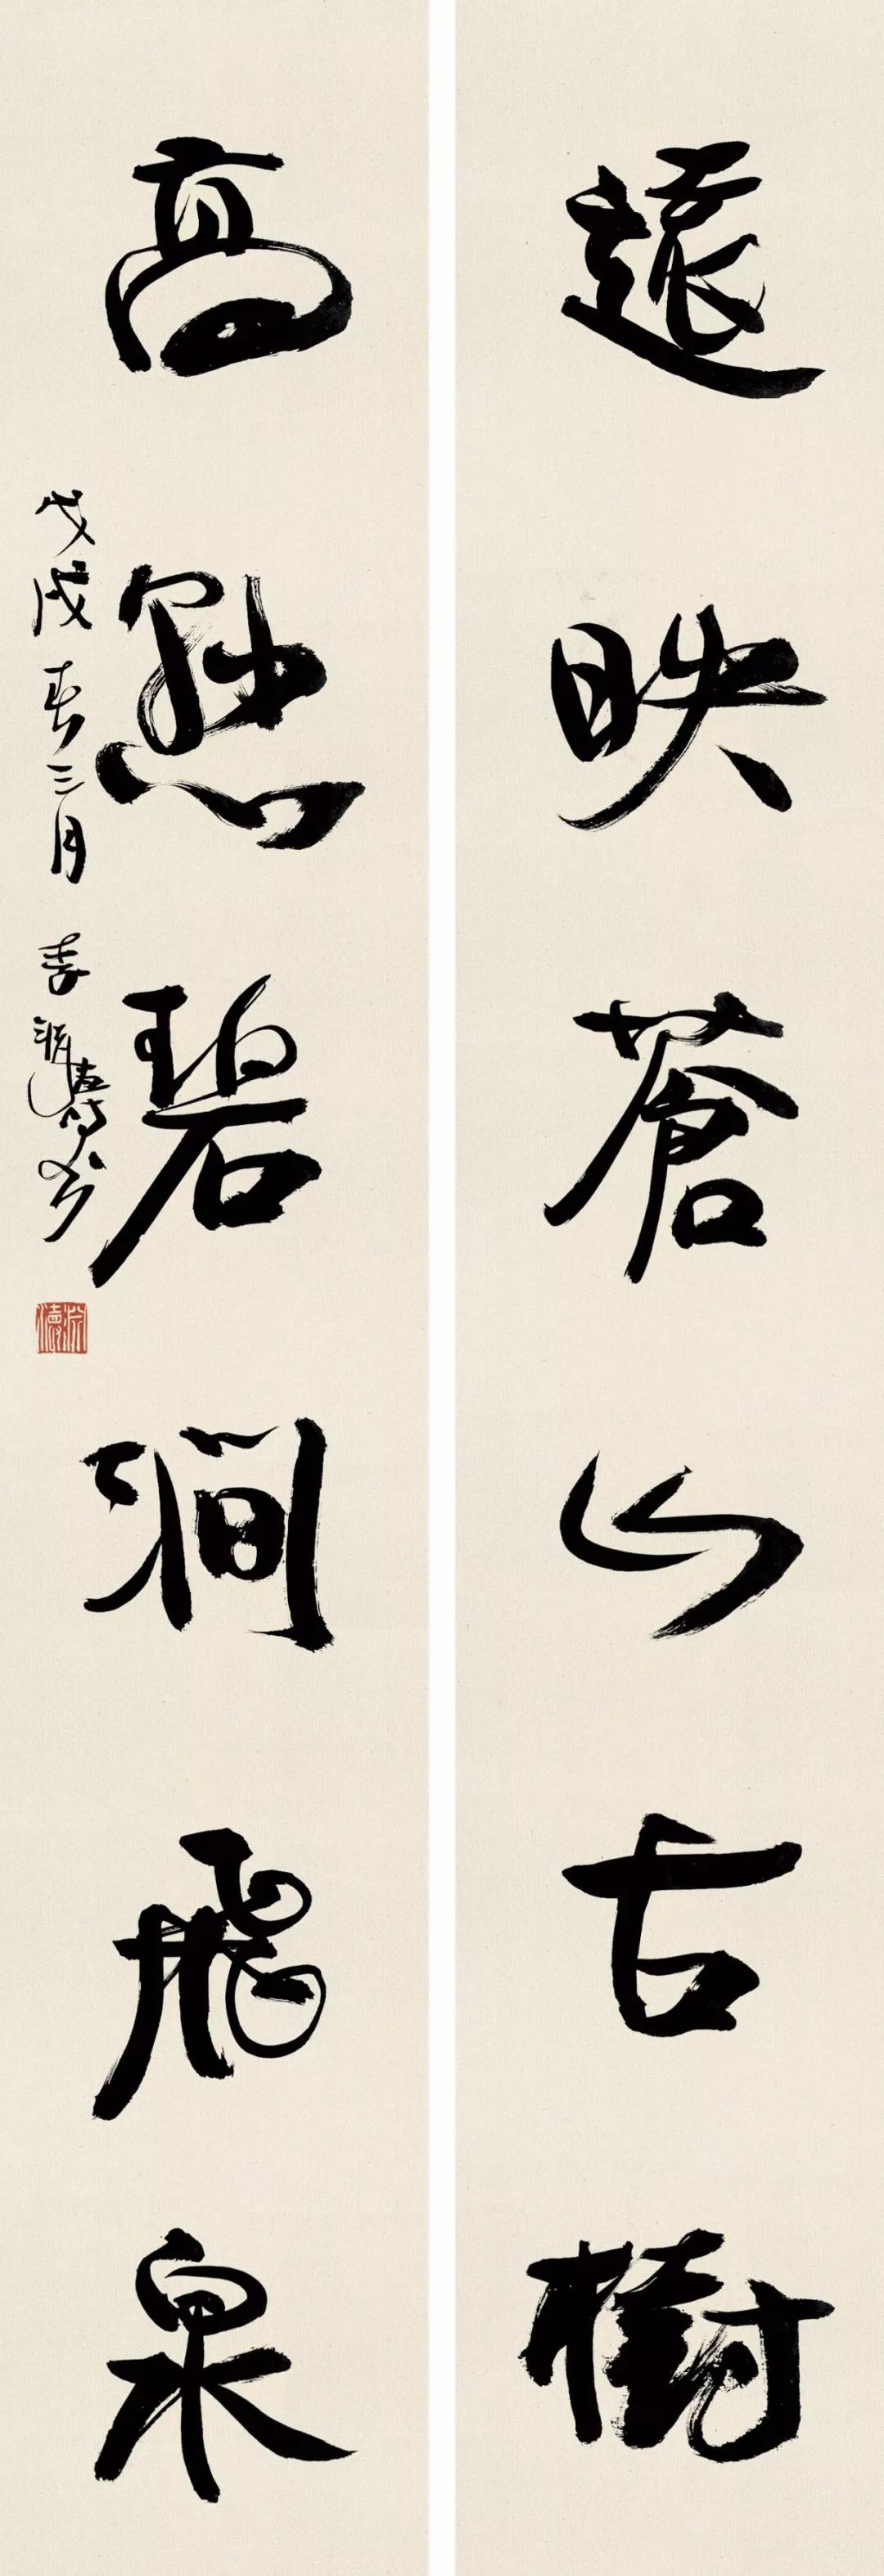 遠映蒼山古樹
高懸碧澗飛泉
戊戌春三月 李